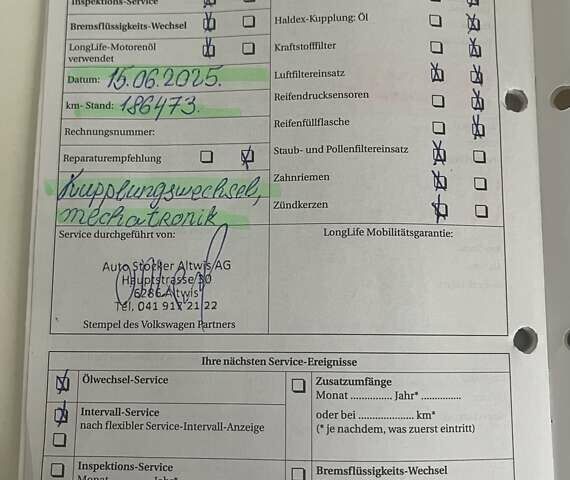 Inspektions-Service
Bremsflüssigkeits-Wechsel
LongLife-Motorenöl
verwendet
Datum: 15.06.2025.
km- Stand: 186473.
Rechnungsnummer:
Reparaturempfehlung
Kupplungswechsel,
mechatronik
Service durchgeführt von:
Auto Stocker Altwis AG
Hauptstrasse 30
6286 Altwis
Tel. 041 917 21 22
Stempel des Volkswagen Partners
Haldex-Kupplung: Öl
Kraftstofffilter
Luftfiltereinsatz
Reifendrucksensoren
Reifenfüllflasche
Staub- und Pollenfiltereinsatz
Zahnriemen
Zündkerzen
LongLife Mobilitätsgarantie:
Ihre nächsten Service-Ereignisse
Ölwechsel-Service
Intervall-Service
nach flexibler Service-Intervall-Anzeige
Inspektions-Service
Monat ............... Jahr* ..............
Zusatzumfänge
Monat ............... Jahr* ..............
oder bei .................... km*
(* je nachdem, was zuerst eintritt)
Bremsflüssigkeits-Wechsel